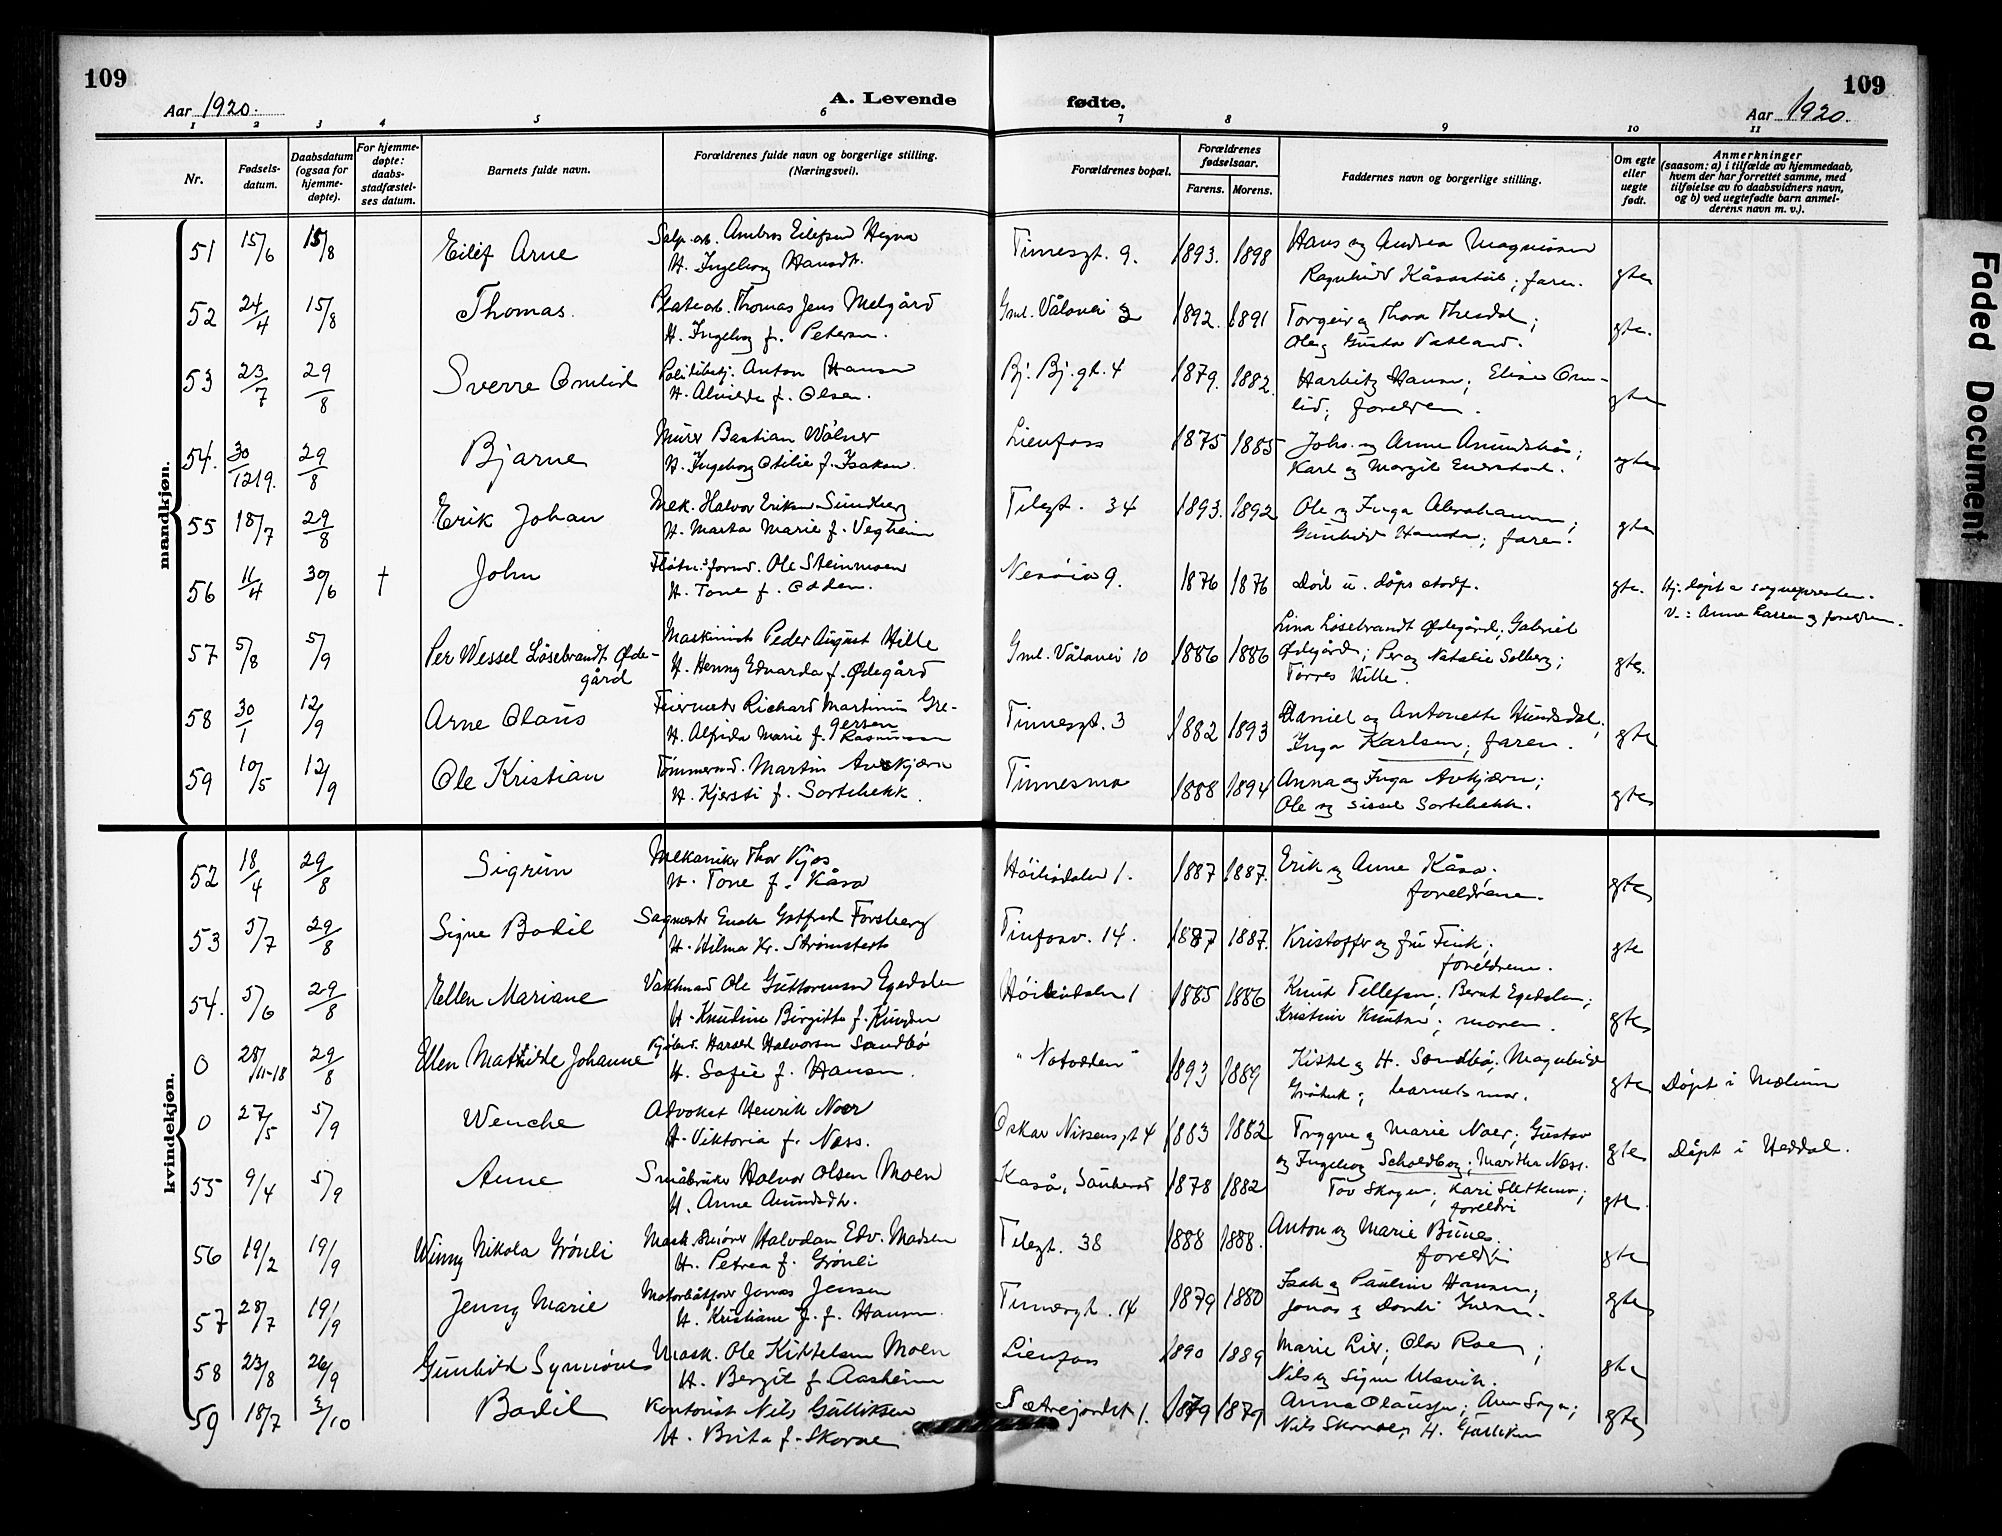 109
109
Aar 1920.
A. Levende
fødte.
Aar 1920.
1 2 3 4 5 6 7 8 9 10 11
Nr.
Fødsels-
datum.
Daabsdatum
(ogsaa for
hjemme-
døpte).
For hjemme-
døpte:
daabs-
stadfæstel-
ses datum.
Barnets fulde navn.
Forældrenes fulde navn og borgerlige stilling.
(Næringsvei).
Forældrenes bopæl.
Forældrenes
fødselsaar.
Farens. Morens.
Faddernes navn og borgerlige stilling.
Om egte
eller
uegte
født.
Anmerkninger
(saasom: a) i tilfælde av hjemmedaab,
hvem der har forrettet samme, med
tilføielse av to daabsvidners navn,
og b) ved uegtefødte barn anmel-
derens navn m. v.).
mandkjøn.
51 15/6 15/8 Eilef Arne Salp. arb. Ambros Eilefsen Hegna Tinnesgt. 9. 1893. 1898 Hans og Andrea Magnussen
H. Ingeborg Hansdt. Ragnhild Kåsastul; faren. gte
52 24/4 15/8 Thomas. Platearb. Thomas Jens Melgård Gml. Vålavei 2 1892. 1891 Torgeir og Thora
H. Ingeborg f. Petersen. Ole og Gusta Vatland. gte.
53 23/7 29/8 Sverre Omlid Politibetj. Anton Hansen Bj. Bj. gt. 4 1879. 1882. Harbitz Hansen; Elise Om-
H. Alvilde f. Olsen. lid; foreldrene. gte
54. 30/12 19. 29/8 Bjarne Murer Bastian Wølner Lienfoss 1875 1885 Johs. og Anne Amundsbøs;
H. Ingeborg Otilie f. Isaksen. Karl og Margit Enerstad. gte
55 18/7 29/8 Erik Johan Mek. Halvor Eriksen Sundberg Telegt. 34 1893. 1892 Ole og Inga Abrahamsen;
H. Marta Marie f. Vegheim Gunhild Hansen; faren. gte
56 11/4 30/6 † John Fløtn.s form. Ole Steinmoen Nesøia 9. 1876 1876 Død u. dåps stadf. gte. Hj. døpt a sognepresten.
H. Tone f. Odden. V.: Anna Larsen og foreldrene.
57 5/8 5/9 Per Wessel Løsebrandt Øde- Maskinist Peder August Hille Gml. Vålavei 10 1886 1886 Lina Løsebrandt Ødegård; Gabriel
gård H. Henny Edvarda f. Ødegård Ødegård; Per og Natalie Solberg;
Torres Hille. gte.
58 30/1 12/9 Arne Olaus Feiermstr Richard Martinus Gre- Tinnesgt. 3 1882 1893 Daniel og Antonette Hundsdal;
gersen
H. Alfrida Marie f. Rasmussen Inga Karlsen; faren. gte
59 10/5 12/9 Ole Kristian Tømmerm. Martin Avskjærn Tinnesmo 1888 1894 Anna og Inga Avskjærn;
H. Kjersti f. Sortebekk. Ole og Sissel Sortebekk. gte
kvindekjøn.
52 18/4 29/8 Sigrun Mekaniker Thor Kjos Høiliedalen 1. 1887 1887. Erik og Anne Kåsa;
H. Tone f. Kåsa foreldrene. gte
53 5/7 29/8 Signe Bodil Sagmestr Enok Gotfred Forsberg Tinfosv. 14. 1887 1887. Kristoffer og fru Fink;
H. Hilma Kr. Strømstedt foreldrene. gte
54. 5/6 29/8 Ellen Mariane Vaktmand Ole Guttormsen Egedalen Høiliedalen 1 1885 1886 Knut Tellefsen; Bernt Egedalen;
H. Knudine Birgitte f. Knudsen Kristine Knutsen; moren. gte
0 28/11-18 29/8 Ellen Mathilde Johanne Harald Halvorsen Sandbø "Notodden" 1893 1889 Kittel og H. Sandbø; Magnhild
H. Sofie f. Hansen. barnets mor. gte Døpt i Mælum
0 27/5 5/9 Wenche Advokat Henrik Noer Oskar Nilsens gt 4 1883 1882 Trygve og Marie Noer; Gustav
H. Viktoria f. Næss. og Ingeborg Scholdborg; Martha Næss. gte Døpt i Heddal.
55 9/4 5/9 Anne Småbruker Halvor Olsen Moen Kaså, Sauherad 1878 1882 Tov Skogen; Kari Slettemo;
H. Anne Amundsdtr. foreldri gte
56 19/2 19/9 Winny Nikola Grønli Mask.smører Halvdan Edv. Madsen Telegt. 38 1888 1888. Anton og Marie Bunes.
H. Petrea f. Grønli foreldri gte
57 28/7 19/9 Jenny Marie Motorbåtfører Jonas Jensen Tinnesgt. 14 1879 1880 Isak og Pauline Hansen;
H. Kristiane J. f. Hansen. Jonas og Dordi Iversen. gte
58 23/8 26/9 Gunhild Synnøve Mask. Ole Kittelsen Moen Lienfoss 1890 1889 Marie Lier; Olav Roe;
H. Bergit f. Aasheim Nils og Signe Ulsvik. gte
59 18/7 3/10 Bodil Kontorist Nils Gulliksen Sætrejordet 1. 1879 1879 Anna Olausen;
H. Brita f. Skorve Nils Skorve; H. Gulliksen gte
Faded Document